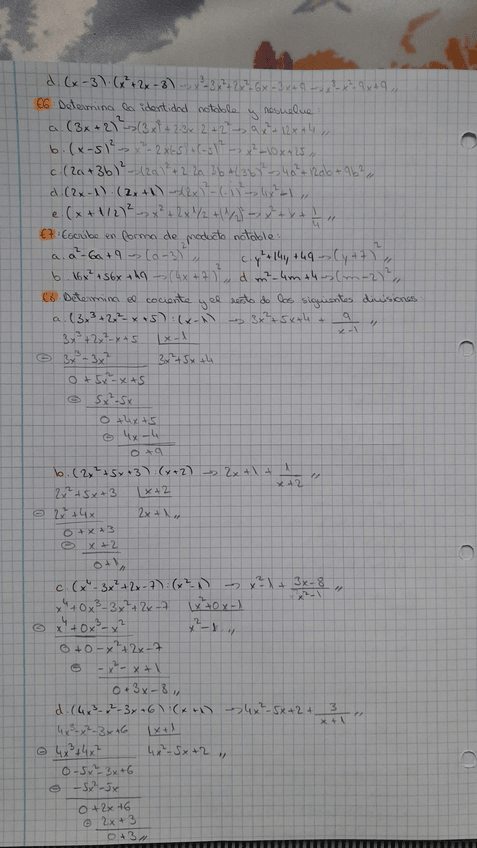 d. (x-3)·(x²+2x-3) → x³-3x²+2x²-6x-3x+9 → x³-x²-9x+9 //
E6 Determina la identidad notable y resuelve:
a. (3x+2)² → (3x)²+2·3x·2+2² → 9x²+12x+4 //
b. (x-5)² → x²-2·x·5+(-5)² → x²-10x+25 //
c. (2a+3b)² → (2a)²+2·2a·3b+(3b)² → 4a²+12ab+9b² //
d. (2x-1)·(2x+1) → (2x)²-(-1)² → 4x²-1 //
e. (x+1/2)² → x²+2x1/2+(1/2)² → x²+x+1/4 //
E7 Escribe en forma de producto notable:
a. a²-6a+9 → (a-3)² // c. y²+14y+49 → (y+7)²
b. 16x²+56x+49 → (4x+7)² // d m²-4m+4 → (m-2)² //
E8 Determina el cociente y el resto de las siguientes divisiones:
a. (3x³+2x²-x+5):(x-1) → 3x²+5x+4+9/(x-1) //
3x³+2x²-x+5 |x-1
3x³-3x² 3x²+5x+4
0+5x²-x+5
5x²-5x
0+4x+5
4x-4
0+9
b. (2x²+5x+3):(x+2) → 2x+1+1/(x+2) //
2x²+5x+3 |x+2
2x²+4x 2x+1 //
0+x+3
x+2
0+1 //
c (x⁴-3x²+2x-7):(x²-1) → x²-1+(3x-8)/(x²-1) //
x⁴+0x³-3x²+2x-7 |x²+0x-1
x⁴+0x³-x² x²-1 //
0+0-x²+2x-7
-x²-x+1
0+3x-8 //
d. (4x³-x²-3x+6):(x+1) → 4x²-5x+2+3/(x+1) //
4x³-x²-3x+6 |x+1
4x³+4x² 4x²-5x+2 //
0-5x²-3x+6
-5x²-5x
0+2x+6
2x+3
0+3 //